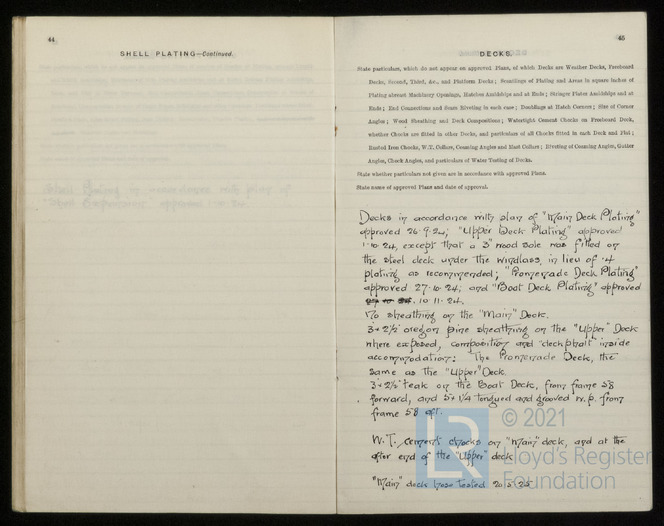 44
SHELL PLATING—Continued.
Shell Plating in accordance with plan of
"Shell Expansion" approved
45
DECKS.
State particulars, which do not appear on approved Plans, of which Decks are Weather Decks, Freeboard
Decks, Second, Third, &c., and Platform Decks; Scantlings of Plating and Areas in square inches of
Plating abreast Machinery Openings, Hatches Amidships and at Ends; Stringer Plates Amidships and at
Ends; End Connections and Seam Riveting in each case; Doublings at Hatch Corners; Size of Corner
Angles; Wood Sheathing and Deck Compositions; Watertight Cement Chocks on Freeboard Deck,
whether Chocks are fitted in other Decks, and particulars of all Chocks fitted in each Deck and Flat;
Rusted Iron Chocks, W.T. Collars, Coaming Angles and Mast Collars; Riveting of Coaming Angles, Gutter
Angles, Chock Angles, and particulars of Water Testing of Decks.
State whether particulars not given are in accordance with approved Plans.
State name of approved Plans and date of approval.
Decks in accordance with plan of "Main Deck Plating"
approved 26.9.24; "Upper Deck Plating" approved
1.10.24, except that a 3" wood sole was fitted on
the steel deck under the windlass, in lieu of .4
plating as recommended; "Promenade Deck Plating"
approved 27.10.24; and "Boat Deck Plating" approved
10.11.24.
No sheathing on the "Main" Deck.
5 x 2½ oregon pine sheathing on the "Upper" Deck
where exposed, composition and "deckphalt" inside
accommodation: The Promenade Deck, the
same as the "Upper" Deck.
5 x 2½ teak on the Boat Deck, from frame 58
forward, and 5 x 1¼ tongued and grooved w.p. from
frame 58 aft.
W.T. cement chocks on "Main" deck, and at the
after end of the "Upper" deck
"Main" deck hose tested 20.5.25
LR
© 2021
Lloyd's Register
Foundation